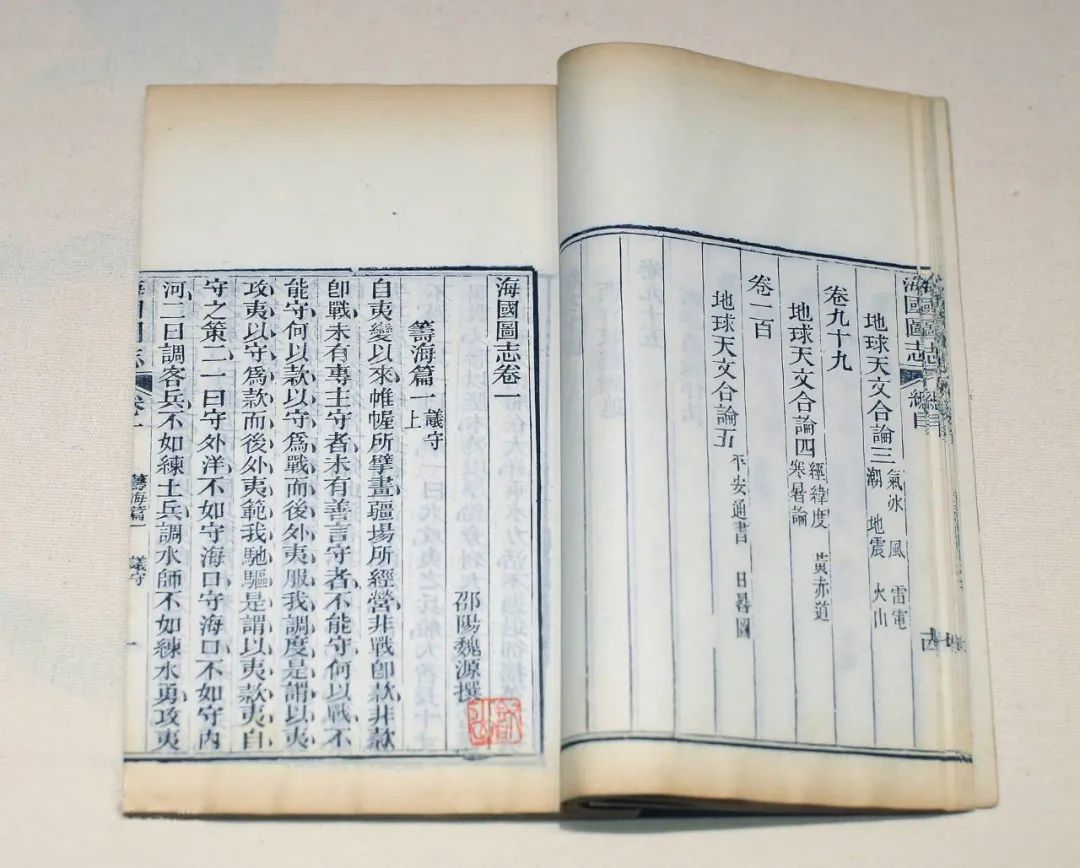 海國圖志
總目
地球天文合論三 氣冰 風 雷電
潮 地震 火山
卷九十九
地球天文合論四 經緯度 黃赤道
寒暑論
卷一百
地球天文合論五 平安通書 日晷圖
海國圖志卷一
邵陽魏源撰
籌海篇一 議守
上
自夷變以來帷幄所擘畫疆場所經營非戰卽款非款
卽戰未有專主守者未有善言守者不能守何以戰不
能守何以款以守爲戰而後外夷服我調度是謂以夷
攻夷以守爲款而後外夷範我馳驅是謂以夷款夷自
守之策二一曰守外洋不如守海口守海口不如守內
河二曰調客兵不如練土兵調水師不如練水勇攻夷
海國圖志 卷一 籌海篇一 議守 一